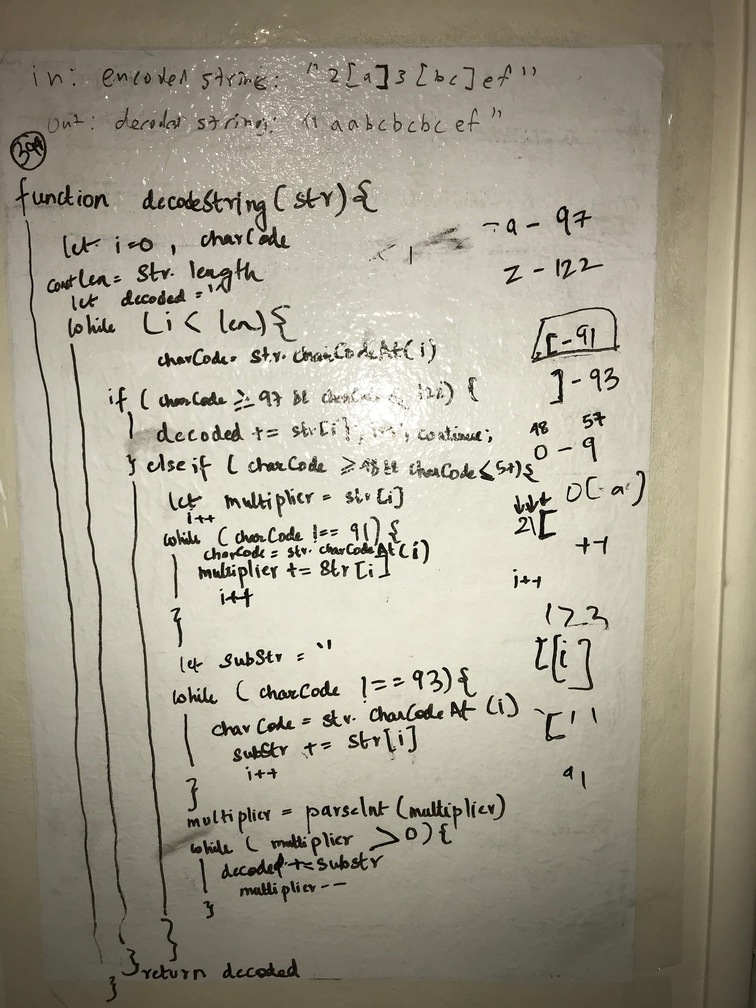 in: encoded string: "2[a]3[bc]ef"
out: decoded string: "aabcbcbcef"
394
function decodeString(str){
let i=0, charCode
const len= str.length
let decoded =''
while (i < len){
charCode= str.charCodeAt(i)
if ( charCode ≥ 97 && charCode ≤ 122) {
decoded += str[i]; i++; continue;
} else if ( charCode ≥ 48 && charCode ≤ 57){
let multiplier = str[i]
i++
while ( charCode !== 91){
charCode = str.charCodeAt(i)
multiplier += str[i]
i++
}
let subStr = ''
while ( charCode !== 93){
charCode = str.charCodeAt(i)
subStr += str[i]
i++
}
multiplier = parseInt(multiplier)
while ( multiplier > 0){
decoded += substr
multiplier--
}
}
}
return decoded
}
a - 97
z - 122
[-91
]-93
48 57
0 - 9
0[a]
21[
++
i++
123
[[i]
'['
91